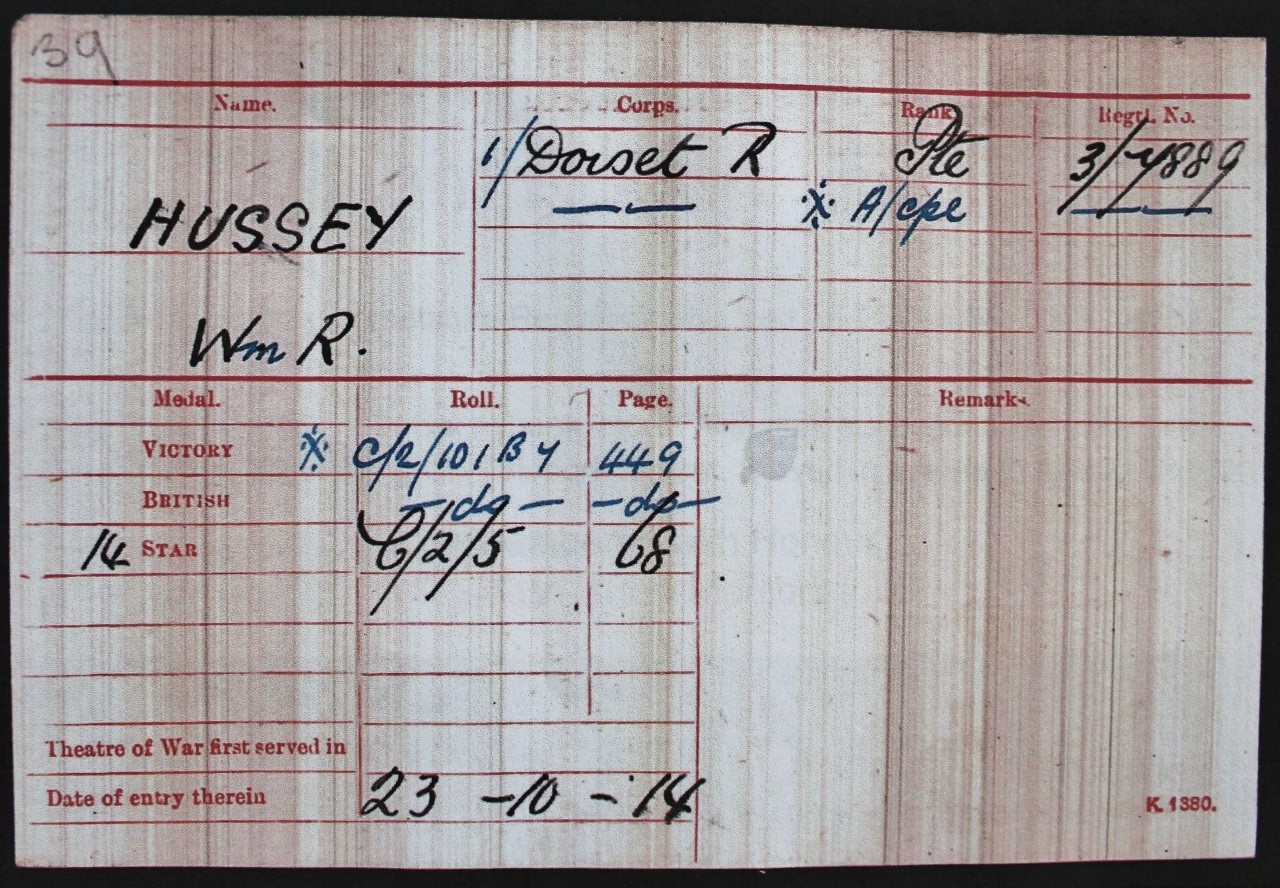 39
Name. Corps. Rank Regtl. No.
1/Dorset R Pte 3/7889
— — ※ A/cpl — —
HUSSEY
Wm R.
Medal. Roll. Page. Remarks.
VICTORY ※ C/2/101B4 449
BRITISH — do — — do —
14 STAR C/2/5 68
Theatre of War first served in
Date of entry therein 23 - 10 - 14
K. 1380.